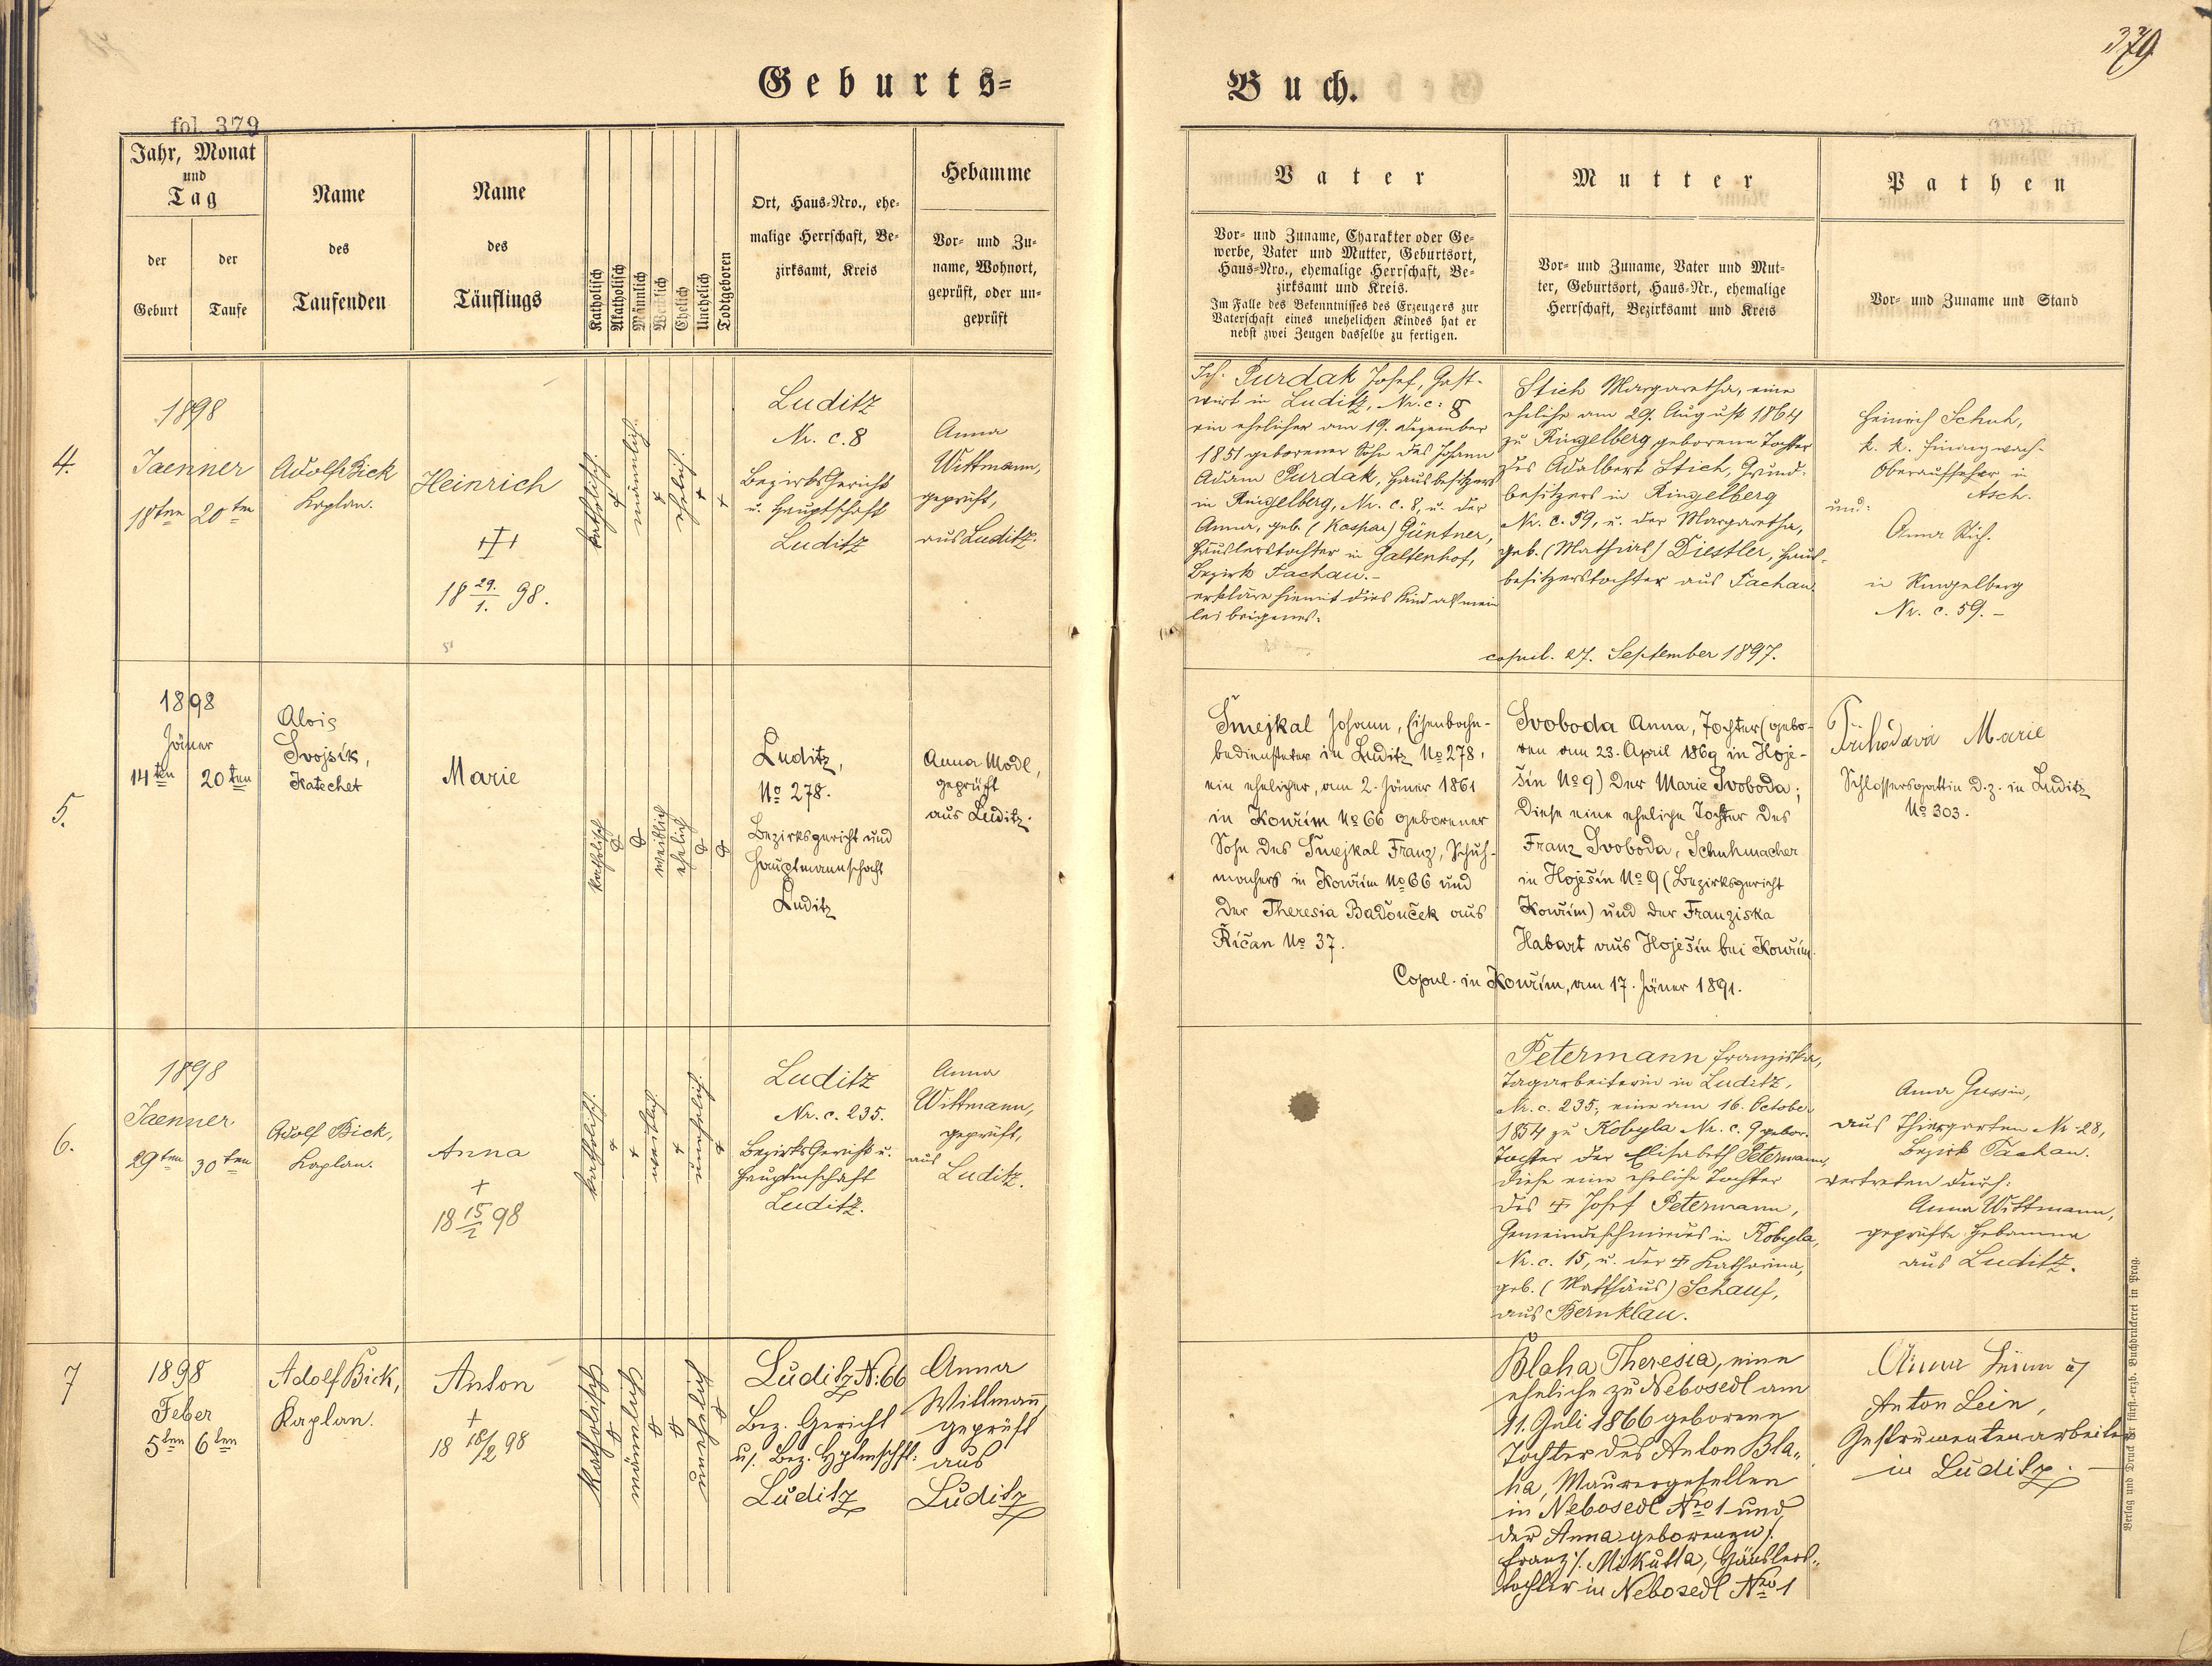 379
Geburts=
Buch.
fol. 379
Jahr, Monat
und
Tag
der
Geburt
der
Taufe
Name
des
Taufenden
Name
des
Täuflings
Katholisch
Akatholisch
Männlich
Weiblich
Ehelich
Unehelich
Todtgeboren
Ort, Haus=Nro., ehe=
malige Herrschaft, Be=
zirksamt, Kreis
Hebamme
Vor= und Zu=
name, Wohnort,
geprüft, oder un=
geprüft
Vater
Vor= und Zuname, Charakter oder Ge=
werbe, Vater und Mutter, Geburtsort,
Haus=Nro., ehemalige Herrschaft, Be=
zirksamt und Kreis.
Im Falle des Bekenntnisses des Erzeugers zur
Vaterschaft eines unehelichen Kindes hat er
nebst zwei Zeugen dasselbe zu fertigen.
Mutter
Vor= und Zuname, Vater und Mut=
ter, Geburtsort, Haus=Nr., ehemalige
Herrschaft, Bezirksamt und Kreis
Pathen
Vor= und Zuname und Stand
4.
1898
Jaenner
18ten 20ten
Adolf Bick
Kaplan.
Heinrich
18 29./1. 98.
katholisch.
männlich.
ehelich.
Luditz
Nr. c. 8
Bezirks Gericht
u. Hauptschaft
Luditz
Anna
Wittmann,
geprüft,
aus Luditz.
Ich. Purdak Josef, Gast-
wirt in Luditz, Nr. c: 8
ein ehelicher am 19. Dezember
1851 geborener Sohn des Johann
Adam Purdak, Hausbesitzers
in Ringelberg, Nr. c. 8, u. der
Anna, geb. (Kaspar) Güntner,
Häuslerstochter in Galtenhof,
Bezirk Tachau.-
erkläre hiemit dies Kind als mein
leibeigenes.
Stich Margaretha, eine
eheliche am 29. August 1864
zu Ringelberg geborene Tochter
des Adalbert Stich, Grund-
besitzers in Ringelberg
Nr. c. 59, u. der Margaretha,
geb. (Mathias) Diestler, Haus-
besitzerstochter aus Tachau.
copul. 27. September 1897.
Heinrich Schuh,
k. k. Finanzwach-
Oberaufseher in
Asch.
und:
Anna
in Ringelberg
Nr. c. 59.-
5.
1898
Jänner
14ten 20ten
Alois
Svojsík,
Katechet
Marie
katholisch
weiblich
ehelich
Luditz,
No 278.
Bezirksgericht und
Hauptmannschaft
Luditz
Anna Modl,
geprüft
aus Luditz.
Šmejkal Johann, Eisenbahn-
bediensteter in Luditz No 278,
ein ehelicher, am 2. Jänner 1861
in Kouřim No 66 geborener
Sohn des Šmejkal Franz, Schuh-
machers in Kouřim No 66 und
der Theresia Badouček aus
Řičan No 37.
Svoboda Anna, Tochter (gebo-
ren am 23. April 1869 in Hoje-
šin No 9) der Marie Svoboda;
diese eine eheliche Tochter des
Franz Svoboda, Schuhmacher
in Hoješín No 9 (Bezirksgericht
Kouřim) und der Franziska
Habart aus Hoješín bei Kouřim.
Copul. in Kouřim, am 17. Jänner 1891.
Přihodová Marie
Schlossersgattin d. z. in Luditz
No 303.
6.
1898
Jaenner
29ten 30ten
Adolf Bick,
Kaplan.
Anna
+
18 15/2 98
katholisch.
weiblich.
unehelich.
Luditz
Nr. c. 235.
Bezirks Gericht u.
Hauptmschaft
Luditz.
Anna
Wittmann,
geprüft,
aus
Luditz.
Petermann Franziska,
Tagarbeiterin in Luditz,
Nr. c. 235, eine am 16. October
1854 zu Kobyla Nr. c. 9 gebor.
Tochter der Elisabeth Petermann,
diese eine eheliche Tochter
des Josef Petermann,
Gemeindeschmiedes in Kobyla,
Nr. c. 15, u. der Katharina,
geb. (Matthäus) Schauf,
aus Bernklau.
Anna
aus Thiergarten Nr. 28,
Bezirk Tachau.
vertreten durch:
Anna Wittmann,
geprüfte Hebamme
aus Luditz.
7
1898
Feber
5ten 6ten
Adolf Bick,
Kaplan.
Anton
+
18 18/2 98
Katholisch
männlich
unehelich
Luditz N: 66
Bez. Gericht
u. Bez. Hptmschft.
Luditz
Anna
Wittmann
geprüft
aus
Luditz
Blaha Theresia, eine
eheliche zu Nebosedl am
11. Juli 1866 geborene
Tochter des Anton Bla-
ha, Maurergesellen
in Nebosedl Nro 1 und
der Anna geborenen /.
Franz /. Mikutta, Häuslers-
tochter in Nebosedl Nro 1
Anton Lein,
Instrumentenarbeiter
in Luditz.
Verlag und Druck der fürst=erzb. Buchdruckerei in Prag.